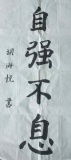 自强不息
胡海悦 书